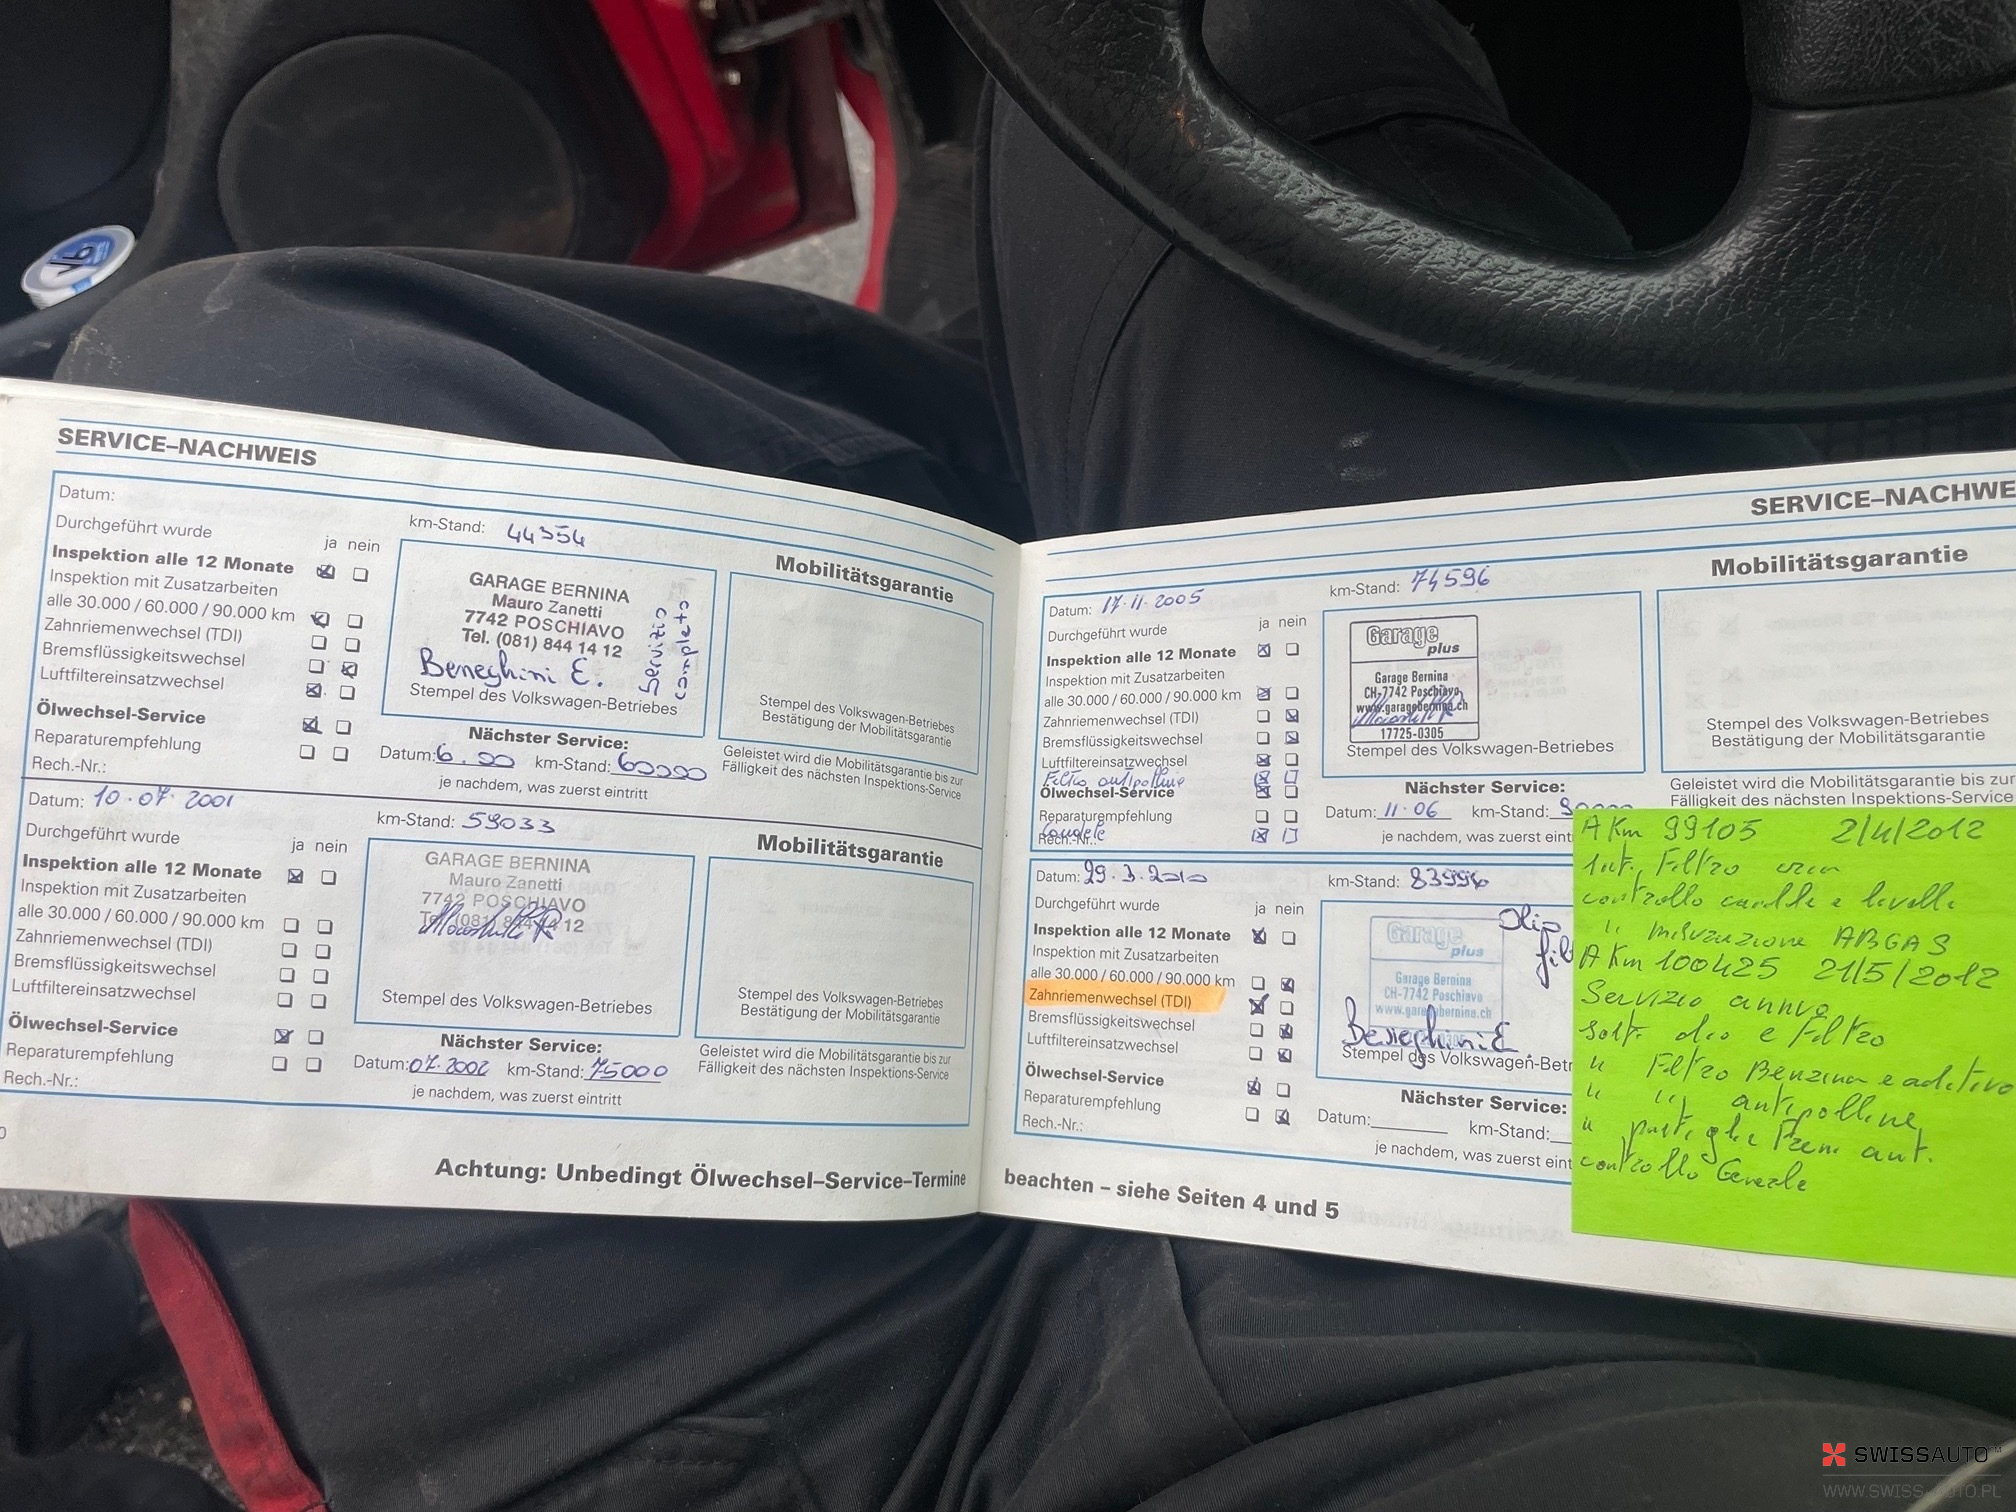 SERVICE–NACHWEIS
Datum:
km-Stand: 44354
Durchgeführt wurde
ja nein
Inspektion alle 12 Monate
Inspektion mit Zusatzarbeiten
alle 30.000 / 60.000 / 90.000 km
Zahnriemenwechsel (TDI)
Bremsflüssigkeitswechsel
Luftfiltereinsatzwechsel
Ölwechsel-Service
Reparaturempfehlung
Rech.-Nr.:
GARAGE BERNINA
Mauro Zanetti
7742 POSCHIAVO
Tel. (081) 844 14 12
Servizio
completo
Beneghini E.
Stempel des Volkswagen-Betriebes
Nächster Service:
Datum: 6.00 km-Stand: 60000
je nachdem, was zuerst eintritt
Mobilitätsgarantie
Stempel des Volkswagen-Betriebes
Bestätigung der Mobilitätsgarantie
Geleistet wird die Mobilitätsgarantie bis zur
Fälligkeit des nächsten Inspektions-Service
Datum: 10.07.2001
km-Stand: 59033
Durchgeführt wurde
ja nein
Inspektion alle 12 Monate
Inspektion mit Zusatzarbeiten
alle 30.000 / 60.000 / 90.000 km
Zahnriemenwechsel (TDI)
Bremsflüssigkeitswechsel
Luftfiltereinsatzwechsel
Ölwechsel-Service
Reparaturempfehlung
Rech.-Nr.:
GARAGE BERNINA
Mauro Zanetti
7742 POSCHIAVO
Tel. (081) 844 14 12
Stempel des Volkswagen-Betriebes
Nächster Service:
Datum: 07.2002 km-Stand: 75000
je nachdem, was zuerst eintritt
Mobilitätsgarantie
Stempel des Volkswagen-Betriebes
Bestätigung der Mobilitätsgarantie
Geleistet wird die Mobilitätsgarantie bis zur
Fälligkeit des nächsten Inspektions-Service
Achtung: Unbedingt Ölwechsel–Service–Termine
SERVICE–NACHWE
Datum: 17.11.2005
km-Stand: 74596
Durchgeführt wurde
ja nein
Inspektion alle 12 Monate
Inspektion mit Zusatzarbeiten
alle 30.000 / 60.000 / 90.000 km
Zahnriemenwechsel (TDI)
Bremsflüssigkeitswechsel
Luftfiltereinsatzwechsel
Filtro antipolline
Ölwechsel-Service
Reparaturempfehlung
Candele
Rech.-Nr.:
Garage
plus
Garage Bernina
CH-7742 Poschiavo
www.garagebernina.ch
17725-0305
Stempel des Volkswagen-Betriebes
Nächster Service:
Datum: 11.06 km-Stand:
je nachdem, was zuerst eint
Mobilitätsgarantie
Stempel des Volkswagen-Betriebes
Bestätigung der Mobilitätsgarantie
Geleistet wird die Mobilitätsgarantie bis zur
Fälligkeit des nächsten Inspektions-Service
Datum: 29.3.2010
km-Stand: 83996
Durchgeführt wurde
ja nein
Inspektion alle 12 Monate
Inspektion mit Zusatzarbeiten
alle 30.000 / 60.000 / 90.000 km
Zahnriemenwechsel (TDI)
Bremsflüssigkeitswechsel
Luftfiltereinsatzwechsel
Ölwechsel-Service
Reparaturempfehlung
Rech.-Nr.:
Garage
plus
Garage Bernina
CH-7742 Poschiavo
www.garagebernina.ch
Olio
fil
Beneghini E.
Stempel des Volkswagen-Betr
Nächster Service:
Datum: km-Stand:
je nachdem, was zuerst eint
beachten – siehe Seiten 4 und 5
A Km 99105 2/4/2012
Filtro
controllo candele e livelli
" misurazione ABGAS
A Km 100425 21/5/2012
Servizio annuo
sost. olio e Filtro
" Filtro Benzina e aditivo
" " antipolline
" pastiglie Freni ant.
controllo Generale
SWISSAUTO
WWW.SWISS-AUTO.PL